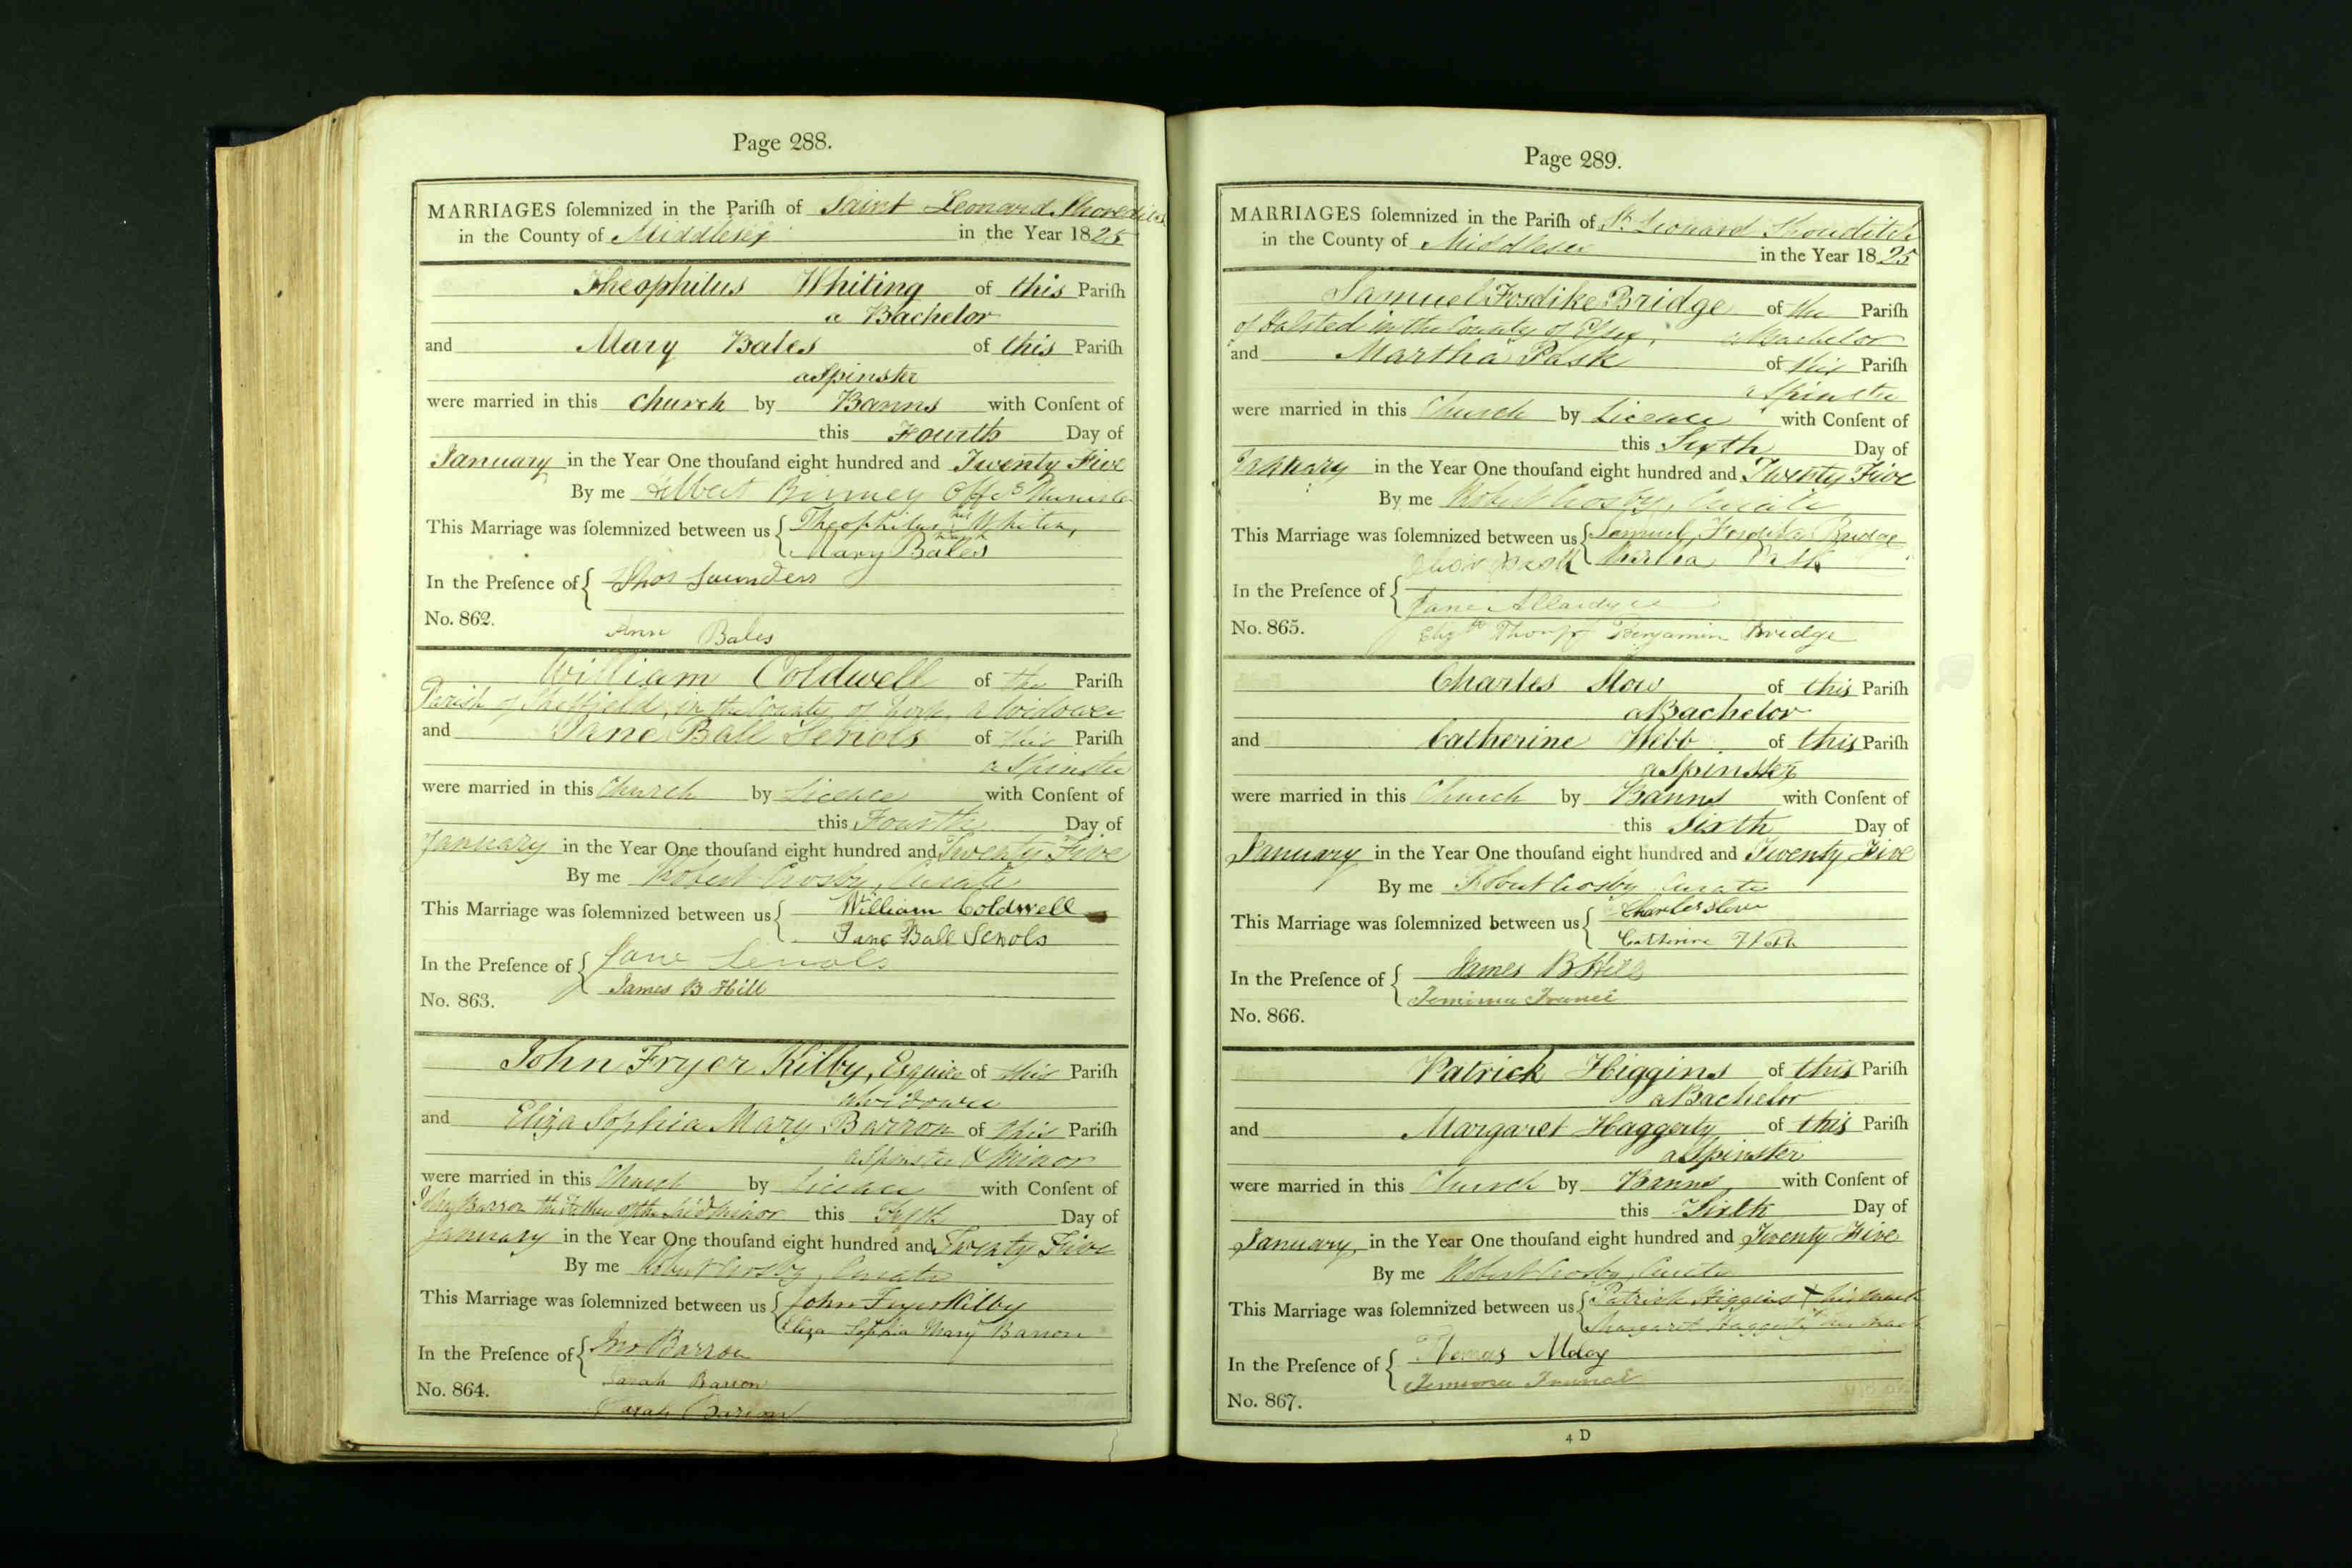 Page 288.
MARRIAGES ſolemnized in the Pariſh of Saint Leonard Shoreditch
in the County of Middlesex in the Year 1825
Theophilus Whiting of this Pariſh
a Bachelor
and Mary Bales of this Pariſh
a Spinster
were married in this church by Banns with Conſent of
this Fourth Day of
January in the Year One thouſand eight hundred and Twenty Five
By me Binney Offg Minister
This Marriage was ſolemnized between us { Theophilus his Whiting
Mary Bales
In the Preſence of { Thos Saunders
No. 862.
Ann Bales
William Coldwell of the Pariſh
Parish of Sheffield, in the County of York, a Widower
and Jane Ball Senols of this Pariſh
a Spinster
were married in this Church by Licence with Conſent of
this Fourth Day of
January in the Year One thouſand eight hundred and Twenty Five
By me Robert Crosby, Curate
This Marriage was ſolemnized between us { William Coldwell
Jane Ball Senols
In the Preſence of { Jane Senols
James B Hill
No. 863.
John Fryer Kilby, Esquire of this Pariſh
a Widower
and Eliza Sophia Mary Barron of this Pariſh
a Spinster & Minor
were married in this Church by Licence with Conſent of
John Barron the Father of the said Minor this Fifth Day of
January in the Year One thouſand eight hundred and Twenty Five
By me Robert Crosby, Curate
This Marriage was ſolemnized between us { John Fryer Kilby
Eliza Sophia Mary Barron
In the Preſence of { Jno Barron
Sarah Barron
No. 864.
Sarah Barron
Page 289.
MARRIAGES ſolemnized in the Pariſh of St Leonard Shoreditch
in the County of Middlesex in the Year 1825
Samuel Fosdike Bridge of the Pariſh
of Halsted in the County of Essex, a Bachelor
and Martha Pask of this Pariſh
a Spinster
were married in this Church by Licence with Conſent of
this Sixth Day of
January in the Year One thouſand eight hundred and Twenty Five
By me Robert Crosby, Curate
This Marriage was ſolemnized between us { Samuel Fosdike Bridge
Pask Martha Pask
In the Preſence of { Jane Allardyce
No. 865.
Elizth Thorp Benjamin Bridge
Charles Slow of this Pariſh
a Bachelor
and Catherine Webb of this Pariſh
a Spinster
were married in this Church by Banns with Conſent of
this Sixth Day of
January in the Year One thouſand eight hundred and Twenty Five
By me Robert Crosby, Curate
This Marriage was ſolemnized between us { Charles Slow
Catherine Webb
In the Preſence of { James B Hill
Jemima France
No. 866.
Patrick Higgins of this Pariſh
a Bachelor
and Margaret Haggerty of this Pariſh
a Spinster
were married in this Church by Banns with Conſent of
this Sixth Day of
January in the Year One thouſand eight hundred and Twenty Five
By me Robert Crosby, Curate
This Marriage was ſolemnized between us { Patrick Higgins X his mark
Margaret Haggerty her mark
In the Preſence of { Thomas
Jemima France
No. 867.
4 D